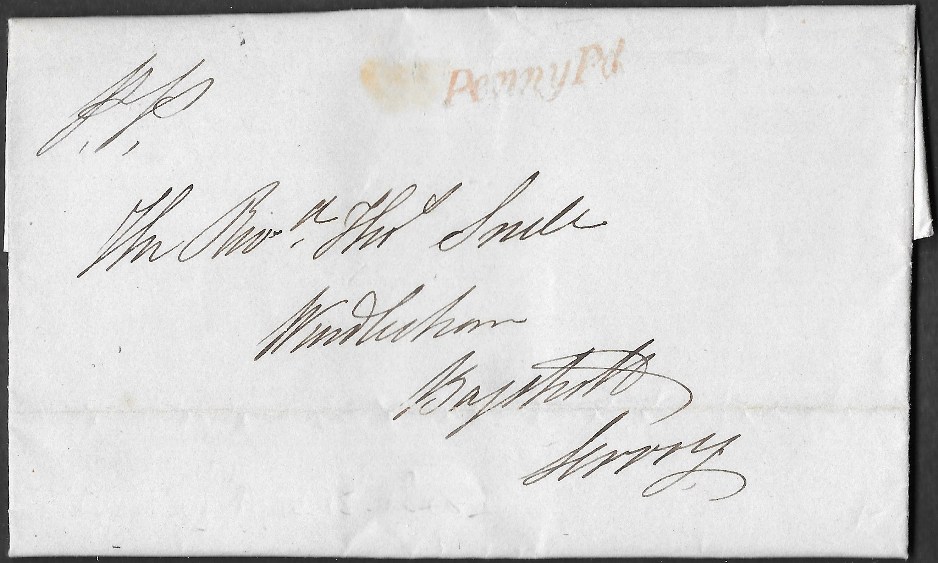 Penny Pd
P.P.
The Revd. Thos Snell
Windlesham
Bagshott
Surrey